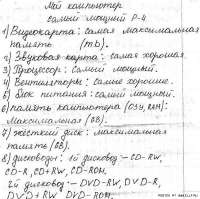 Мой компьютер
самый мощный P-4
1) Видеокарта: самая максимальная
память (mb).
2) Звуковая карта: самая хорошая.
3) Процессор: Самый мощный.
4) Вентиляторы: Самые хорошие.
5) Блок питания: самый мощный.
6) память компьютера (ОЗУ, ROM):
Максимальная (GB).
7) жёсткий диск: максимальная
память (GB).
8) дисководы: 1й дисковод:- CD-RW,
CD-R, CD+RW, CD-ROM,
2й дисковод:- DVD-RW, DVD-R,
DVD+RW DVD-ROM.